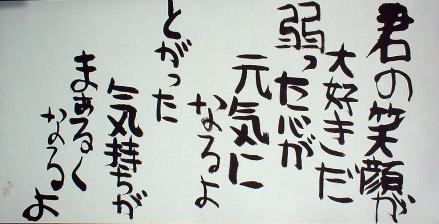 君の笑顔が
大好きだ
弱った心が
元気に
なるよ
とがった
気持ちが
まぁるく
なるよ